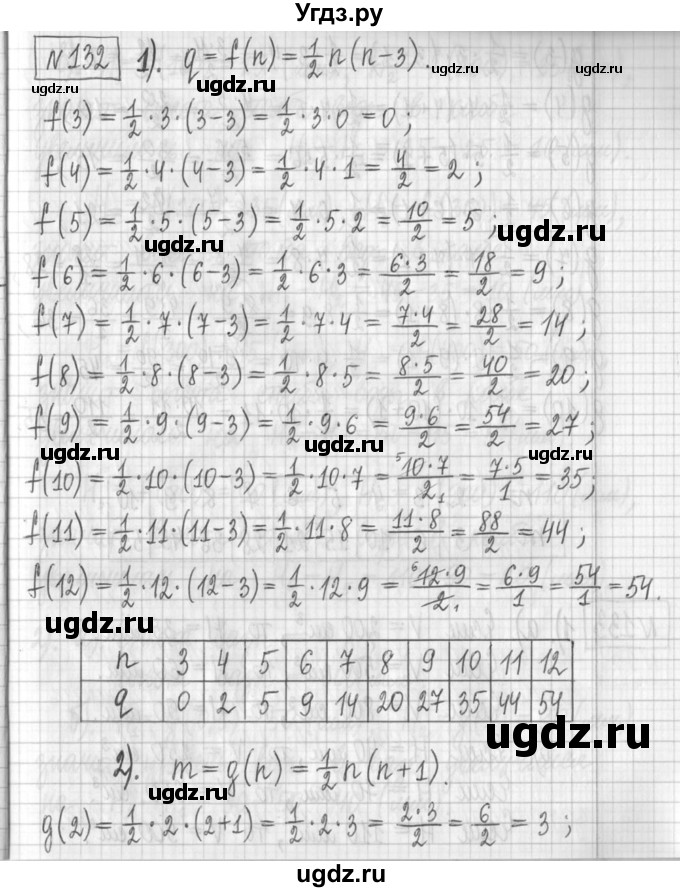 Угдз.ру
№132 1). q = f(n) = 1/2 n(n-3).
ugdz.ru ugdz.ru ugdz.ru
f(3) = 1/2 · 3 · (3-3) = 1/2 · 3 · 0 = 0 ;
f(4) = 1/2 · 4 · (4-3) = 1/2 · 4 · 1 = 4/2 = 2 ;
f(5) = 1/2 · 5 · (5-3) = 1/2 · 5 · 2 = 10/2 = 5 ;
ugdz.ru ugdz.ru
f(6) = 1/2 · 6 · (6-3) = 1/2 · 6 · 3 = 6·3/2 = 18/2 = 9 ;
f(7) = 1/2 · 7 · (7-3) = 1/2 · 7 · 4 = 7·4/2 = 28/2 = 14 ;
f(8) = 1/2 · 8 · (8-3) = 1/2 · 8 · 5 = 8·5/2 = 40/2 = 20 ;
f(9) = 1/2 · 9 · (9-3) = 1/2 · 9 · 6 = 9·6/2 = 54/2 = 27 ;
ugdz.ru ugdz.ru ugdz.ru
f(10) = 1/2 · 10 · (10-3) = 1/2 · 10 · 7 = 5 10·7/2 1 = 7·5/1 = 35 ;
f(11) = 1/2 · 11 · (11-3) = 1/2 · 11 · 8 = 11·8/2 = 88/2 = 44 ;
f(12) = 1/2 · 12 · (12-3) = 1/2 · 12 · 9 = 6 12·9/2 1 = 6·9/1 = 54/1 = 54.
ugdz.ru ugdz.ru
n 3 4 5 6 7 8 9 10 11 12
q 0 2 5 9 14 20 27 35 44 54
ugdz.ru
2). m = g(n) = 1/2 n(n+1).
ugdz.ru
g(2) = 1/2 · 2 · (2+1) = 1/2 · 2 · 3 = 2·3/2 = 6/2 = 3 ;
ugdz.ru ugdz.ru